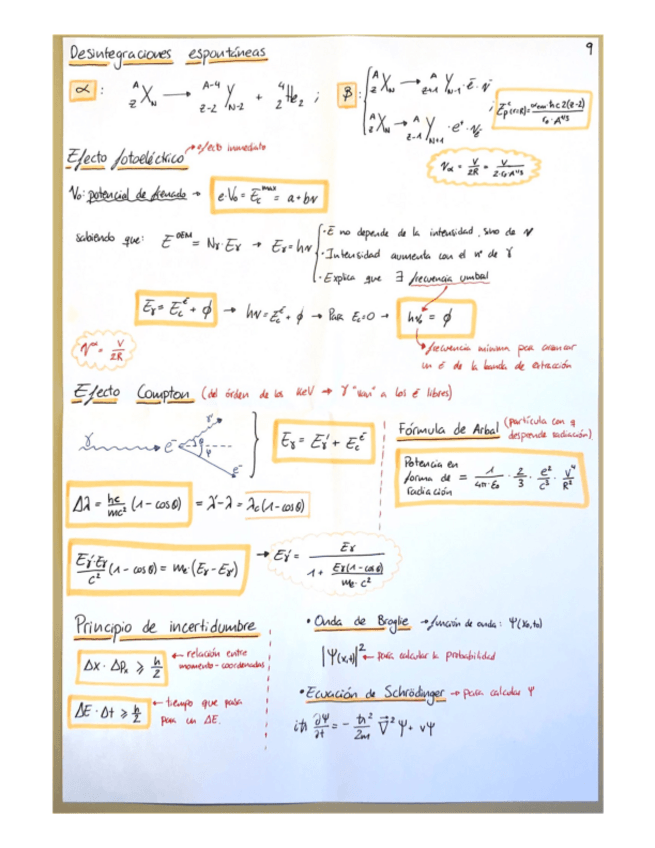 9
Desintegraciones espontáneas
α : ᴬ_Z X_N → ᴬ⁻⁴_Z₋₂ Y_N-2 + ⁴₂He₂ ; β : { ᴬ_Z X_N → ᴬ_Z+1 Y_N-1 · ē · ν̄
ᴬ_Z X_N → ᴬ_Z-1 Y_N+1 · e⁺ · νe
Efecto fotoeléctrico → efecto inmediato
ν_α = V/2R = V/(2·G·A^1/3)
V₀: potencial de frenado → e·V₀ = E_c^max = a + bν
sabiendo que: E^OEM = Nγ·Eγ → Eγ = hν
· E no depende de la intensidad, sino de ν
· Intensidad aumenta con el nº de γ
· Explica que ∃ frecuencia umbral
Eγ = E_c^ē + ϕ → hν = E_c^ē + ϕ → Para Ec=0 → hν₀ = ϕ
ν^α = V/2R
frecuencia mínima para arrancar
un ē de la banda de extracción
Efecto Compton (del órden de los KeV → γ "van" a los ē libres)
γ e⁻ γ' θ φ e⁻
Eγ = Eγ' + E_c^ē
Fórmula de Arbal (partícula con q
desprende radiación)
Potencia en
forma de = 1/(4π·ε₀) · 2/3 · e²/c³ · v⁴/R²
radiación
Δλ = hc/mc² (1-cosθ) = λ'-λ = λc(1-cosθ)
Eγ'·Eγ/c² (1-cosθ) = me·(Eγ-Eγ') → Eγ' = Eγ / (1 + Eγ(1-cosθ)/(me·c²))
Principio de incertidumbre
Δx · ΔPx ⩾ ħ/2 ← relación entre
momento-coordenadas
ΔE · Δt ⩾ ħ/2 ← tiempo que pasa
para un ΔE.
• Onda de Broglie → función de onda: Ψ(x₀,t₀)
|Ψ(x,t)|² ← para calcular la probabilidad
• Ecuación de Schrödinger → para calcular Ψ
iħ ∂Ψ/∂t = - ħ²/2m ∇² Ψ + VΨ